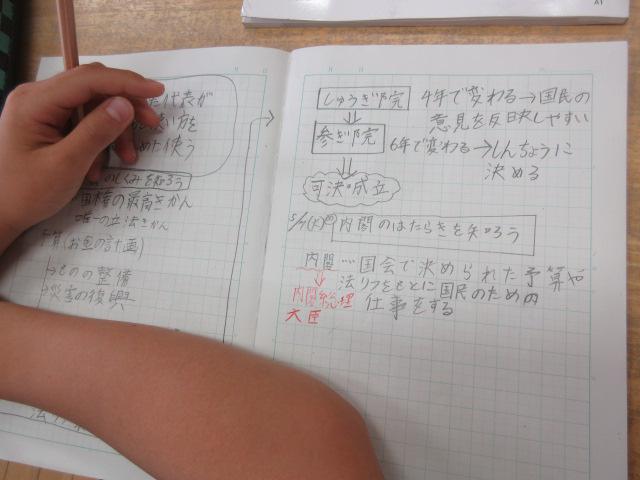 代表が
い方を
めた使う
のしくみを知ろう
国権の最高きかん
唯一の立法きかん
予算(お金の計画)
→ものの整備
→災害の復興
しゅうぎ院 4年で変わる→国民の
意見を反映しやすい
参ぎ院 6年で変わる→しんちょうに
決める
可決・成立
内閣のはたらきを知ろう
内閣…国会で決められた予算や
法りつをもとに国民のための
仕事をする
内閣総理
大臣
A1